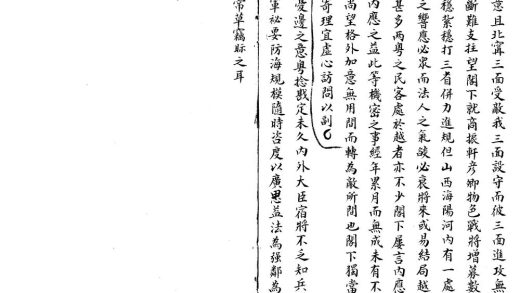 意且北甯三面受敵我三面設守而彼三面進攻無
斷難支拄望閣下就商振軒彥卿物色戰將增募數
穩紮穩打三者併力進規但山西海陽河內有一處
之響應必眾而法人之氣燄必衰將來或易結局越
甚多兩粵之民客處於越者亦不少閣下屢言內應
內應之益此等機密之事經年累月而無成未有不
尚望格外加意無用間而轉為敵所間也閣下獨當
奇理宜虛心訪問以副
憂邊之意粵捻戡定未久內外大臣宿將不乏知兵
軍祕要防海規模隨時咨度以廣思益法為強鄰為
常草竊眎之耳